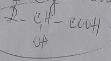 R - CH - COOH
OH